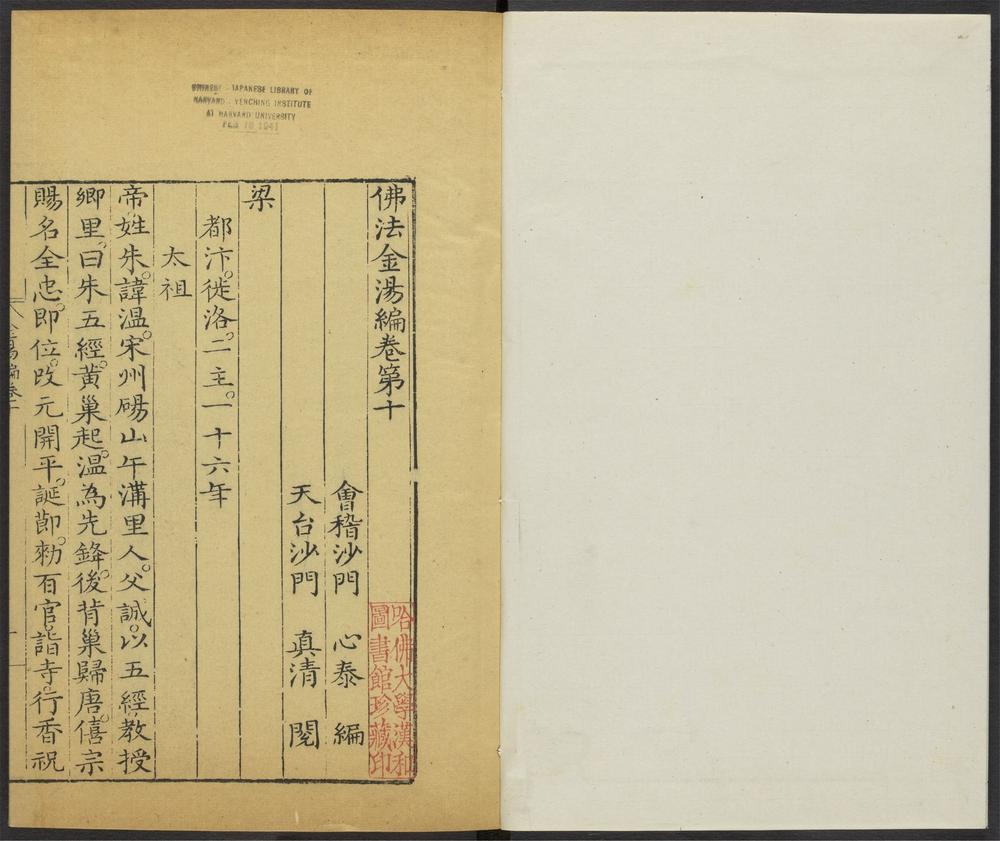 CHINESE - JAPANESE LIBRARY OF
HARVARD - YENCHING INSTITUTE
AT HARVARD UNIVERSITY
FEB 18 1941
佛法金湯編卷第十
會稽沙門 心泰 編
天台沙門 真清 閱
梁
都汴。徙洛。二主。一十六年
太祖
帝姓朱。諱溫。宋州碭山午溝里人。父誠。以五經教授
鄉里。曰朱五經。黃巢起。溫為先鋒。後背巢歸唐。僖宗
賜名全忠。即位。改元開平。誕節。勑百官。詣寺。行香祝
哈佛大學漢和
圖書館珍藏印